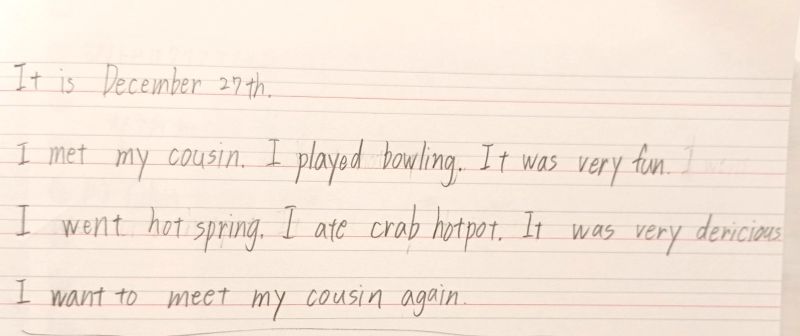 It is December 27th.
I met my cousin. I played bowling. It was very fun.
I went hot spring. I ate crab hotpot. It was very dericious
I want to meet my cousin again.